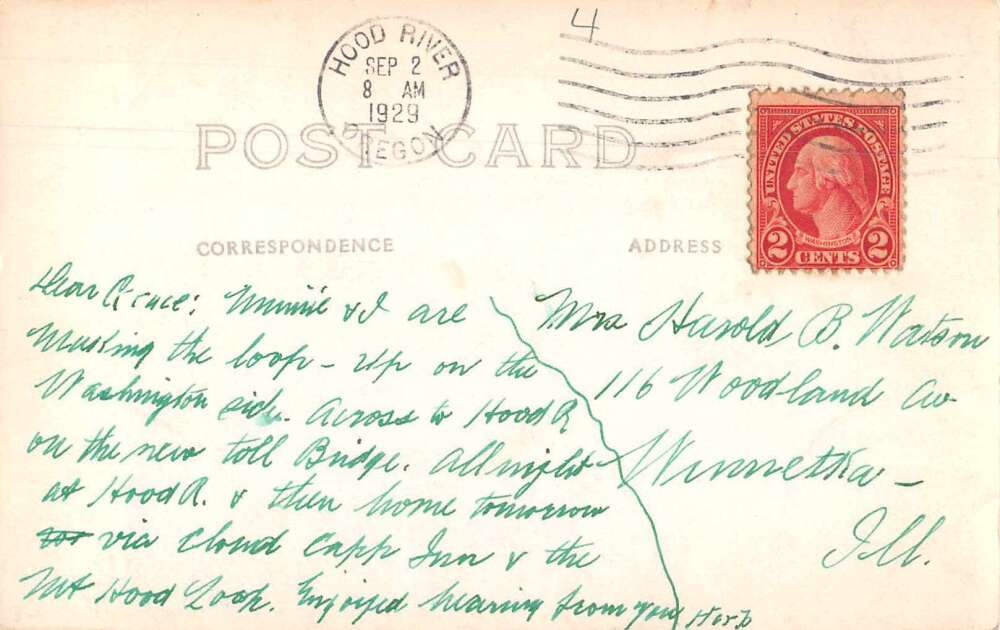 4
HOOD RIVER
SEP 2
8 AM
1929
OREGON
POST CARD
UNITED STATES POSTAGE
WASHINGTON
2 CENTS 2
CORRESPONDENCE
ADDRESS
Dear Grace: Minnie & I are
Making the loop - up on the
Washington side. Across to Hood R
on the new toll Bridge. All night
at Hood R. & then home tomorrow
via Cloud Capp Inn & the
Mt Hood Loop. Enjoyed hearing from you Herb
Mrs Harold B. Watson
116 Woodland Av
Winnetka -
Ill.